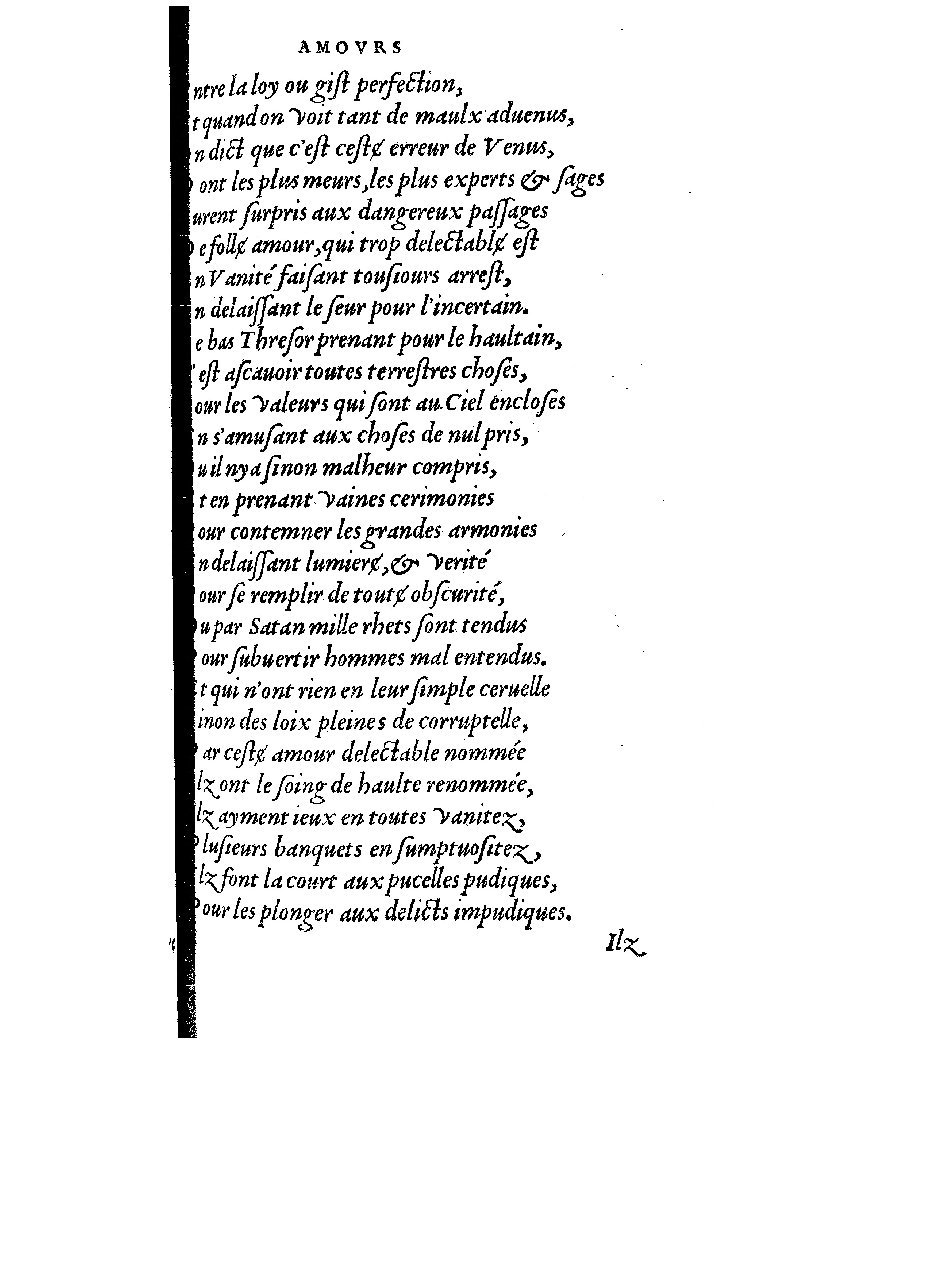 AMOVRS
ntre la loy ou gist perfection,
t quand on voit tant de maulx aduenus,
n dict que c'est cestɇ erreur de Venus,
ont les plus meurs, les plus experts & sages
urent surpris aux dangereux passages
e follɇ amour, qui trop delectablɇ est
n Vanité faisant tousiours arrest,
n delaissant le seur pour l'incertain.
e bas Thresor prenant pour le haultain,
est ascauoir toutes terrestres choses,
our les valeurs qui sont au Ciel encloses
n s'amusant aux choses de nul pris,
u il ny a sinon malheur compris,
t en prenant vaines cerimonies
our contemner les grandes armonies
n delaissant lumierɇ, & verité
our se remplir de toutɇ obscurité,
u par Satan mille rhets sont tendus
our subuertir hommes mal entendus.
t qui n'ont rien en leur simple ceruelle
inon des loix pleines de corruptelle,
ar cestɇ amour delectable nommée
lz ont le soing de haulte renommée,
lz ayment ieux en toutes vanitez,
Plusieurs banquets en sumptuositez,
lz font la court aux pucelles pudiques,
Pour les plonger aux delicts impudiques.
Ilz